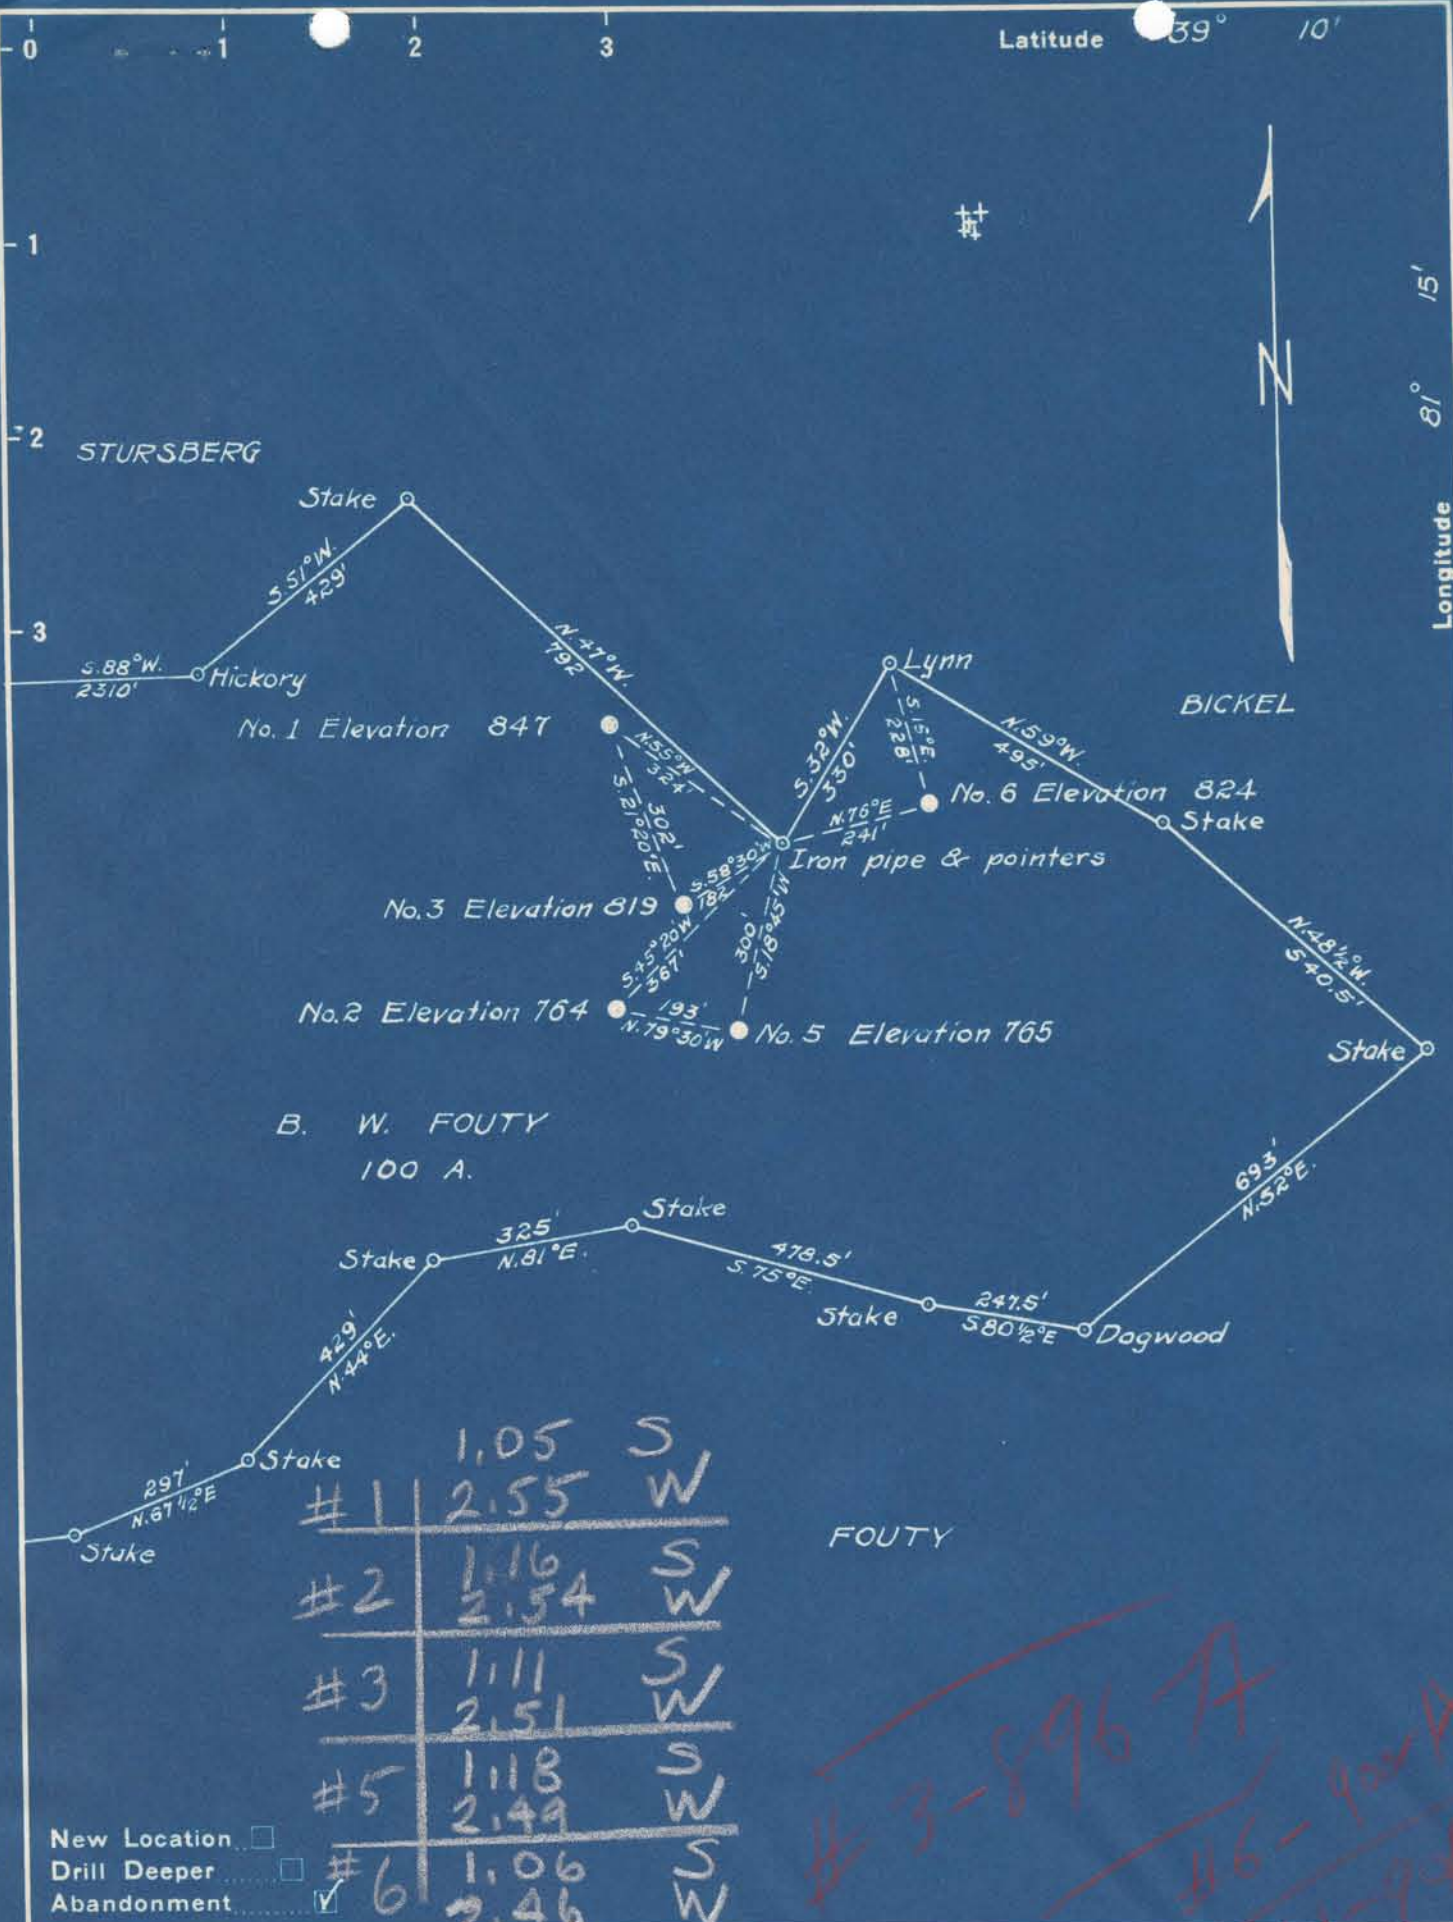 0 1 2 3 Latitude 39° 10'
1
15'
81°
Longitude
N
2
STURSBERG
Stake
S.51°W.
429'
3
S.88°W.
2310'
Hickory
N.47°W.
792
Lynn
BICKEL
No. 1 Elevation 847
N.55°W
324'
S.32°W.
330'
S.15°E.
228'
N.59°W.
495'
S.21°20'E.
302'
No. 6 Elevation 824
N.76°E
241'
Stake
Iron pipe & pointers
S.58°30'W
182'
No. 3 Elevation 819
S.45°20'W
367'
300'
S.18°45'W
N.48½°W.
540.5'
No. 2 Elevation 764
193'
N.79°30'W
No. 5 Elevation 765
Stake
B. W. FOUTY
100 A.
693'
N.52°E.
Stake
325'
N.81°E.
Stake
478.5'
S.75°E.
Stake
247.5'
S80½°E
Dogwood
429'
N.44°E.
Stake
297'
N.67½°E
Stake
FOUTY
1.05 S
#1 2.55 W
1.16 S
#2 2.54 W
1.11 S
#3 2.51 W
1.18 S
#5 2.49 W
#6 1.06 S
2.46 W
# 3-896-A
#6-900-A
New Location
Drill Deeper
Abandonment ✓